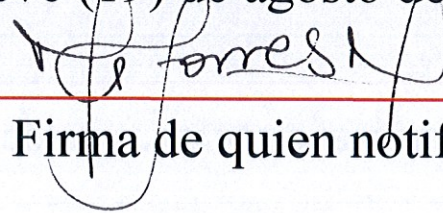 de agosto de
Torres
Firma de quien notif